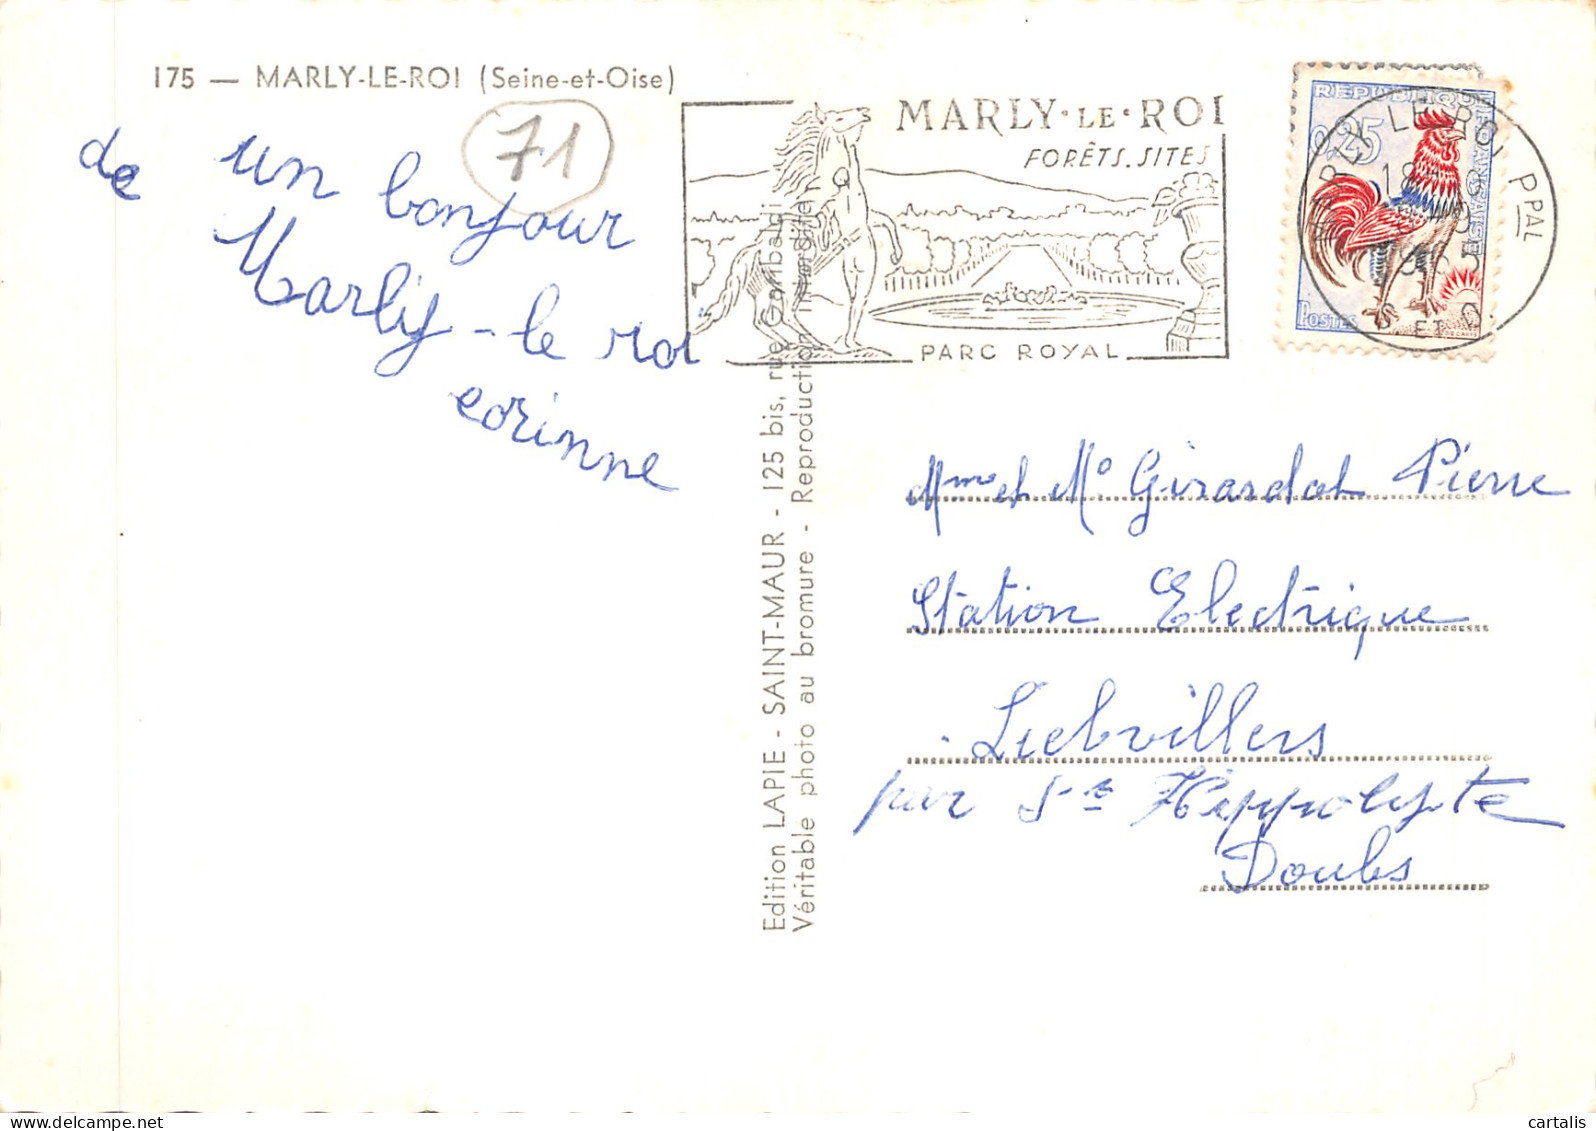 175 — MARLY-LE-ROI (Seine-et-Oise)
71
un bonjour
de
Marly-le roi
corinne
MARLY·LE·ROI
FORÊTS. SITES
PARC ROYAL
REPUBLIQUE FRANÇAISE
0,25
POSTES
MARLY LE ROI PPAL
18
1965
S ET O
Edition LAPIE - SAINT-MAUR - 125 bis, rue Garibaldi
Véritable photo au bromure - Reproduction interdite
Mme et Mo Girardot Pierre
Station Electrique
Liebvillers
par St Hippolyte
Doubs
cartalis